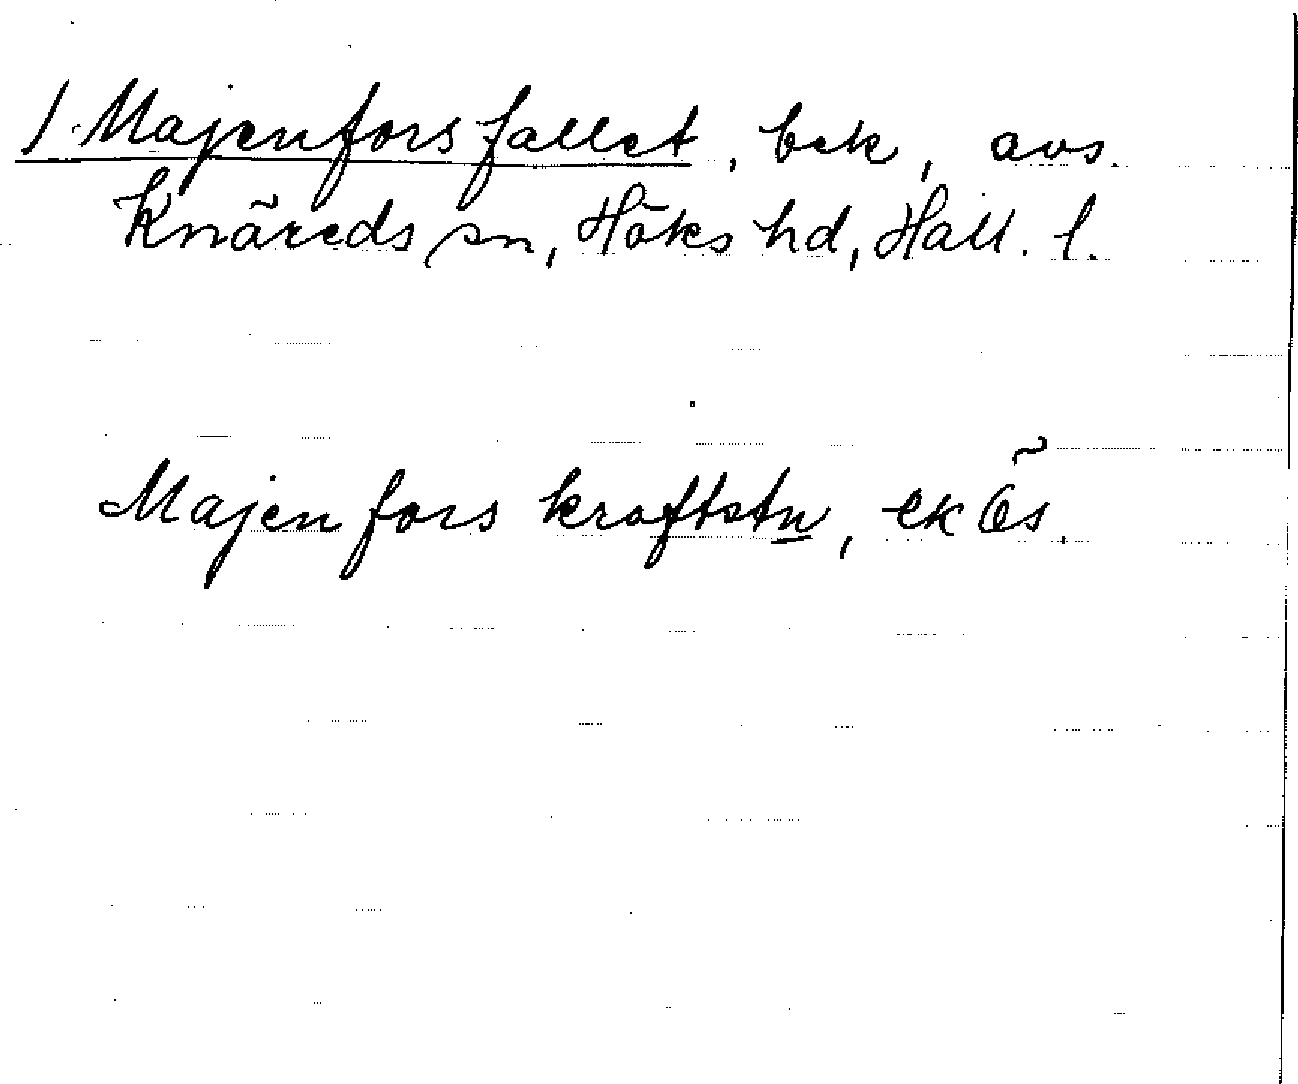 / Majenforsfallet, bek, avs.
Knäreds sn, Höks hd, Hall. l.
Majenfors kraftstn, ek Ös.